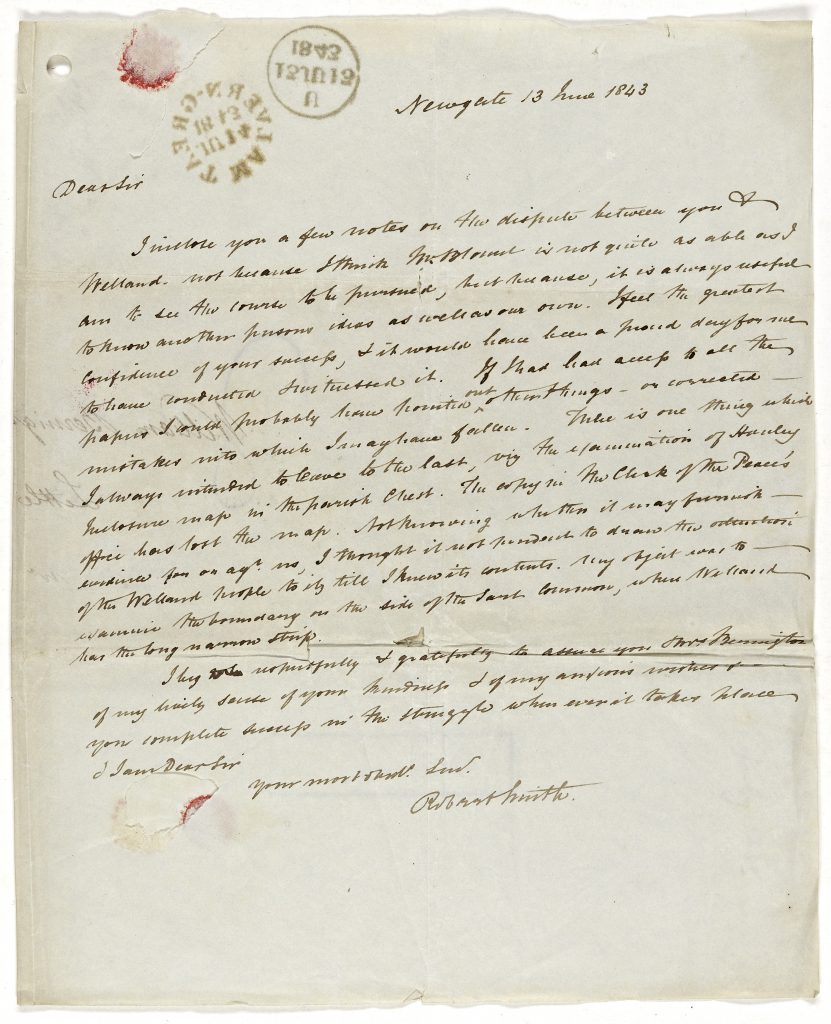 1843
13JU13
U
GREAT MALVERN
JU 14
1843
Newgate 13 June 1843
Dear Sir
I inclose you a few notes on the dispute between you &
Welland. not because I think Mr. Blount is not quite as able as I
am to see the course to be pursued, but because, it is always useful
to know another persons ideas as well as our own. I feel the greatest
confidence of your success, & it would have been a proud day for me
to have conducted & witnessed it. If I had had access to all the
papers I could probably have pointed out other things – or corrected –
mistakes into which I may have fallen. There is one thing which
I always intended to leave to the last, viz the examination of Hanley
Inclosure map in the parish Chest. The copy in the Clerk of the Peace's
office has lost the map. Not knowing whether it may furnish –
evidence for or agst. us, I thought it not prudent to draw the attention
of the Welland people to it, till I knew its contents. My object was to –
examine the boundary on the side of the Common, where Welland
has the long narrow strip.
I beg respectfully & gratefully to assure you & Mrs
of my lively sense of your kindness & of my anxious wishes for
you complete success in the struggle when ever it takes place
& I am Dear Sir
your most obedt. Servt.
Robert Smith.